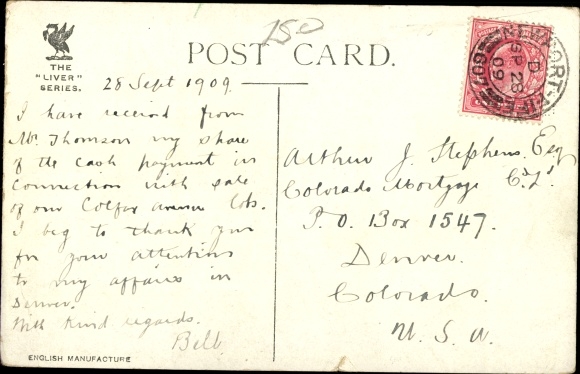 150
POST CARD.
THE
"LIVER"
SERIES.
28 Sept 1909.
I have received from
Mr. Thomson my share
of the cash payment in
connection with sale
of our Colfax avenue lots.
I beg to thank you
for your attention
to my affairs in
Denver.
With kind regards.
Bell
ENGLISH MANUFACTURE
NEWPORT-FIFE
D
SP 28
09
Arthur J. Stephens. Esq
Colorado Mortgage Co. Ld.
P. O. Box 1547.
Denver.
Colorado.
U. S. A.